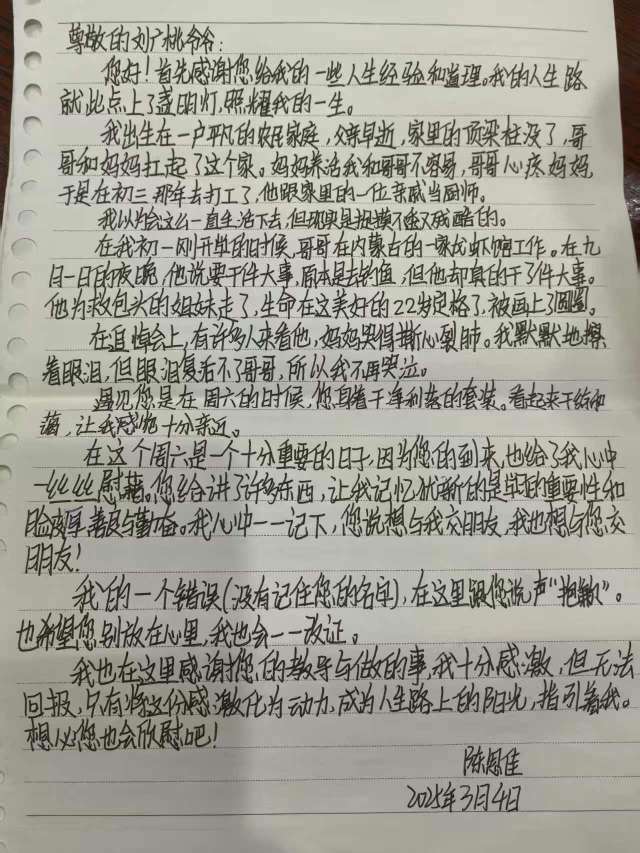 尊敬的刘广桃爷爷：
您好！首先感谢您给我的一些人生经验和道理。我的人生路
就此点上了盏明灯，照耀我的一生。
我出生在一户平凡的农民家庭，父亲早逝，家里的顶梁柱没了，哥
哥和妈妈扛起了这个家。妈妈养活我和哥哥不容易，哥哥心疼妈妈，
于是在初三那年去打工了，他跟家里的一位亲戚当厨师。
我以为会这么一直生活下去，但现实是捉摸不透又残酷的。
在我初一刚开学的时候，哥哥在内蒙古的一家龙虾馆工作。在九
月一日的夜晚，他说要干件大事，原本是去的值，但他却真的干了件大事。
他为救包头的姐妹走了，生命在这美好的22岁定格了，被画上了圆圈。
在追悼会上，有许多人来看他，妈妈哭得撕心裂肺。我默默地擦
着眼泪，但眼泪复活不了哥哥，所以我不再哭泣。
遇见您是在周六的时候，您身着干净利落的套装。看起来干练和
蔼，让我感觉十分亲近。
在这个周六是一个十分重要的日子，因为您的到来，也给了我心中
一丝丝慰藉。您给讲了许多东西，让我记忆犹新的是学习的重要性和
脸皮厚、善良与勤奋。我心中一一记下，您说想与我交朋友，我也想与您交
朋友！
我的一个错误（没有记住您的名字），在这里跟您说声“抱歉”。
也希望您别放在心里，我也会一一改正。
我也在这里感谢您的教导与做的事，我十分感激，但无法
回报，只有将这份感激化为动力，成为人生路上的阳光，指引着我。
想必您也会欣慰吧！
陈恩佳
2025年3月4日